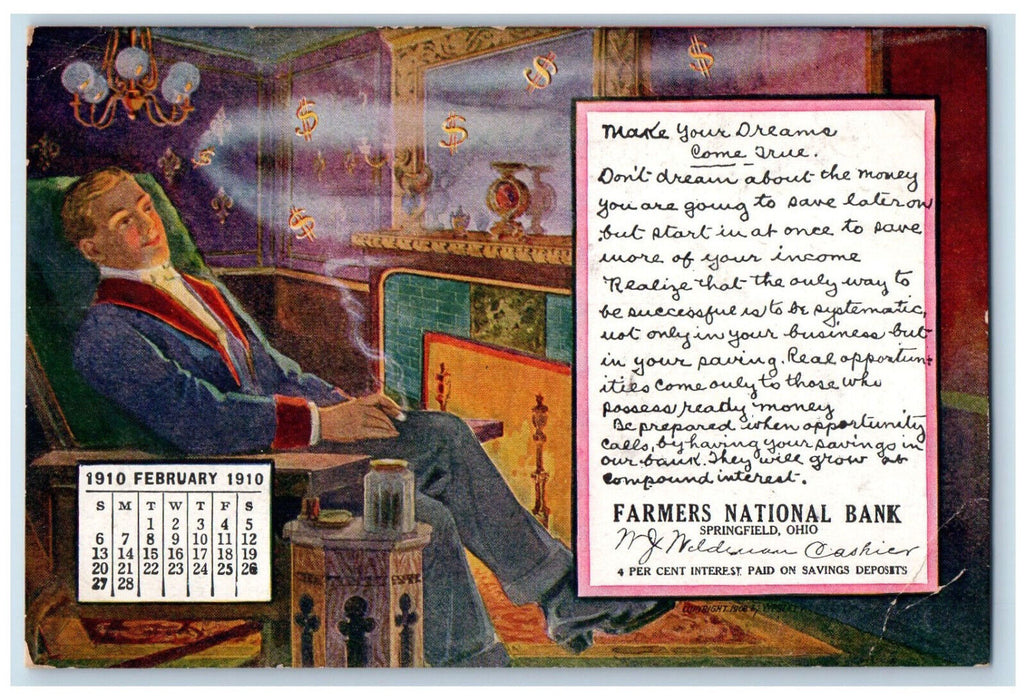 Make Your Dreams
Come True.
Don't dream about the money
you are going to save later on
but start in at once to save
more of your income
Realize that the only way to
be successful is to be systematic,
not only in your business but
in your saving. Real opportun-
ities come only to those who
possess ready money
Be prepared when opportunity
calls, by having your savings in
our bank. They will grow at
compound interest.
FARMERS NATIONAL BANK
SPRINGFIELD, OHIO
Cashier
4 PER CENT INTEREST PAID ON SAVINGS DEPOSITS
COPYRIGHT
1910 FEBRUARY 1910
S M T W T F S
1 2 3 4 5
6 7 8 9 10 11 12
13 14 15 16 17 18 19
20 21 22 23 24 25 26
27 28
$
$
$
$
$
$